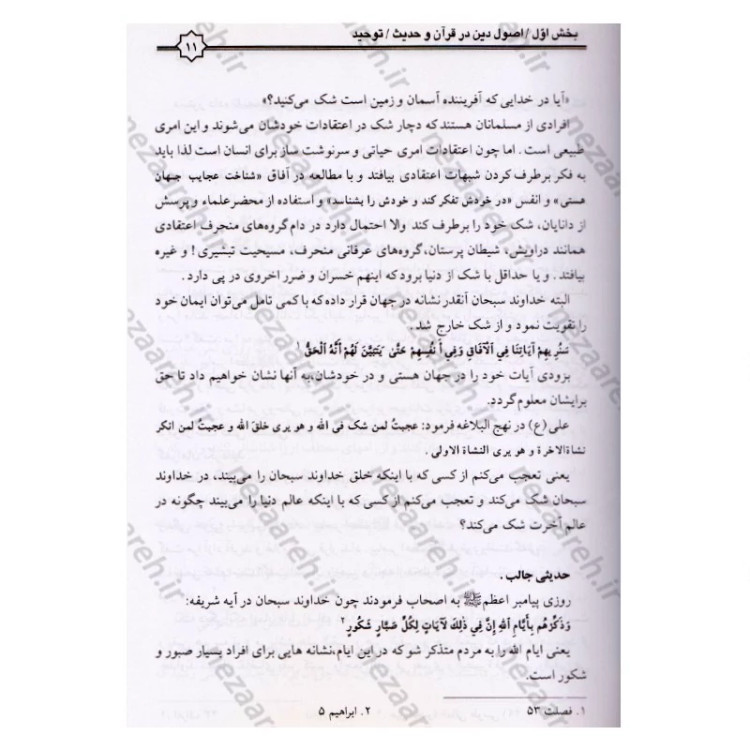 بخش اوّل / اصول دین در قرآن و حدیث / توحید
۱۱
«آیا در خدایی که آفریننده آسمان و زمین است شک می‌کنید؟»
افرادی از مسلمانان هستند که دچار شک در اعتقادات خودشان می‌شوند و این امری
طبیعی است . اما چون اعتقادات امری حیاتی و سرنوشت ساز برای انسان است لذا باید
به فکر برطرف کردن شبهات اعتقادی بیافتد و با مطالعه در آفاق «شناخت عجایب جهان
هستی» و انفس «در خودش تفکر کند و خودش را بشناسد» و استفاده از محضر علماء و پرسش
از دانایان، شک خود را برطرف کند والا احتمال دارد در دام گروه‌های منحرف اعتقادی
همانند دراویش، شیطان پرستان، گروه‌های عرفانی منحرف، مسیحیت تبشیری! و غیره
بیافتد . و یا حداقل با شک از دنیا برود که اینهم خسران و ضرر اخروی در پی دارد .
البته خداوند سبحان آنقدر نشانه در جهان قرار داده که با کمی تامل می‌توان ایمان خود
را تقویت نمود و از شک خارج شد .
سَنُرِیهِمْ آیَاتِنَا فِی الْآفَاقِ وَفِی أَنفُسِهِمْ حَتَّىٰ یَتَبَیَّنَ لَهُمْ أَنَّهُ الْحَقُّ ۱
بزودی آیات خود را در جهان هستی و در خودشان، به آنها نشان خواهیم داد تا حق
برایشان معلوم گردد.
علی (ع) در نهج البلاغه فرمود: عجبتُ لمن شک فی الله و هو یری خلق الله و عجبتُ لمن انکر
نشاة الاخرة و هو یری النشاة الاولی .
یعنی تعجب می‌کنم از کسی که با اینکه خلق خداوند سبحان را می‌بیند، در خداوند
سبحان شک می‌کند و تعجب می‌کنم از کسی که با اینکه عالم دنیا را می‌بیند چگونه در
عالم آخرت شک می‌کند؟
حدیثی جالب .
روزی پیامبر اعظم ﷺ به اصحاب فرمودند چون خداوند سبحان در آیه شریفه:
وَذَکِّرْهُم بِأَیَّامِ اللَّهِ إِنَّ فِی ذَٰلِکَ لَآیَاتٍ لِکُلِّ صَبَّارٍ شَکُورٍ ۲
یعنی ایام الله را به مردم متذکر شو که در این ایام، نشانه هایی برای افراد بسیار صبور و
شکور است.
۱. فصلت ۵۳
۲. ابراهیم ۵
nezaareh.ir